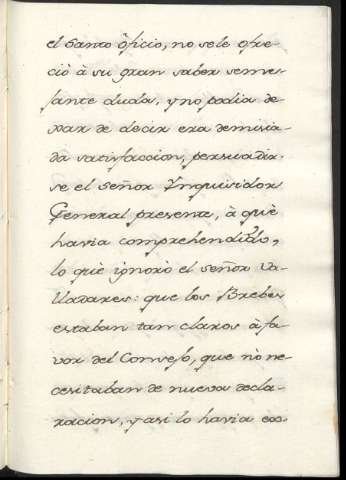 el Santo òficio, no se le ofre-
ciò à su gran saber seme-
jante duda, y no podia de-
xar de decir era demisia-
da satisfaccion, persuadir-
se el señor Ynquisidor
General presente, à què
havia comprehendido,
lo què ignorò el señor Va-
lladares: que los Brebes
estaban tan claros à fa-
vor del Consejo, que nò ne-
cesitaban de nueva decla-
racion, y asi lo havia co